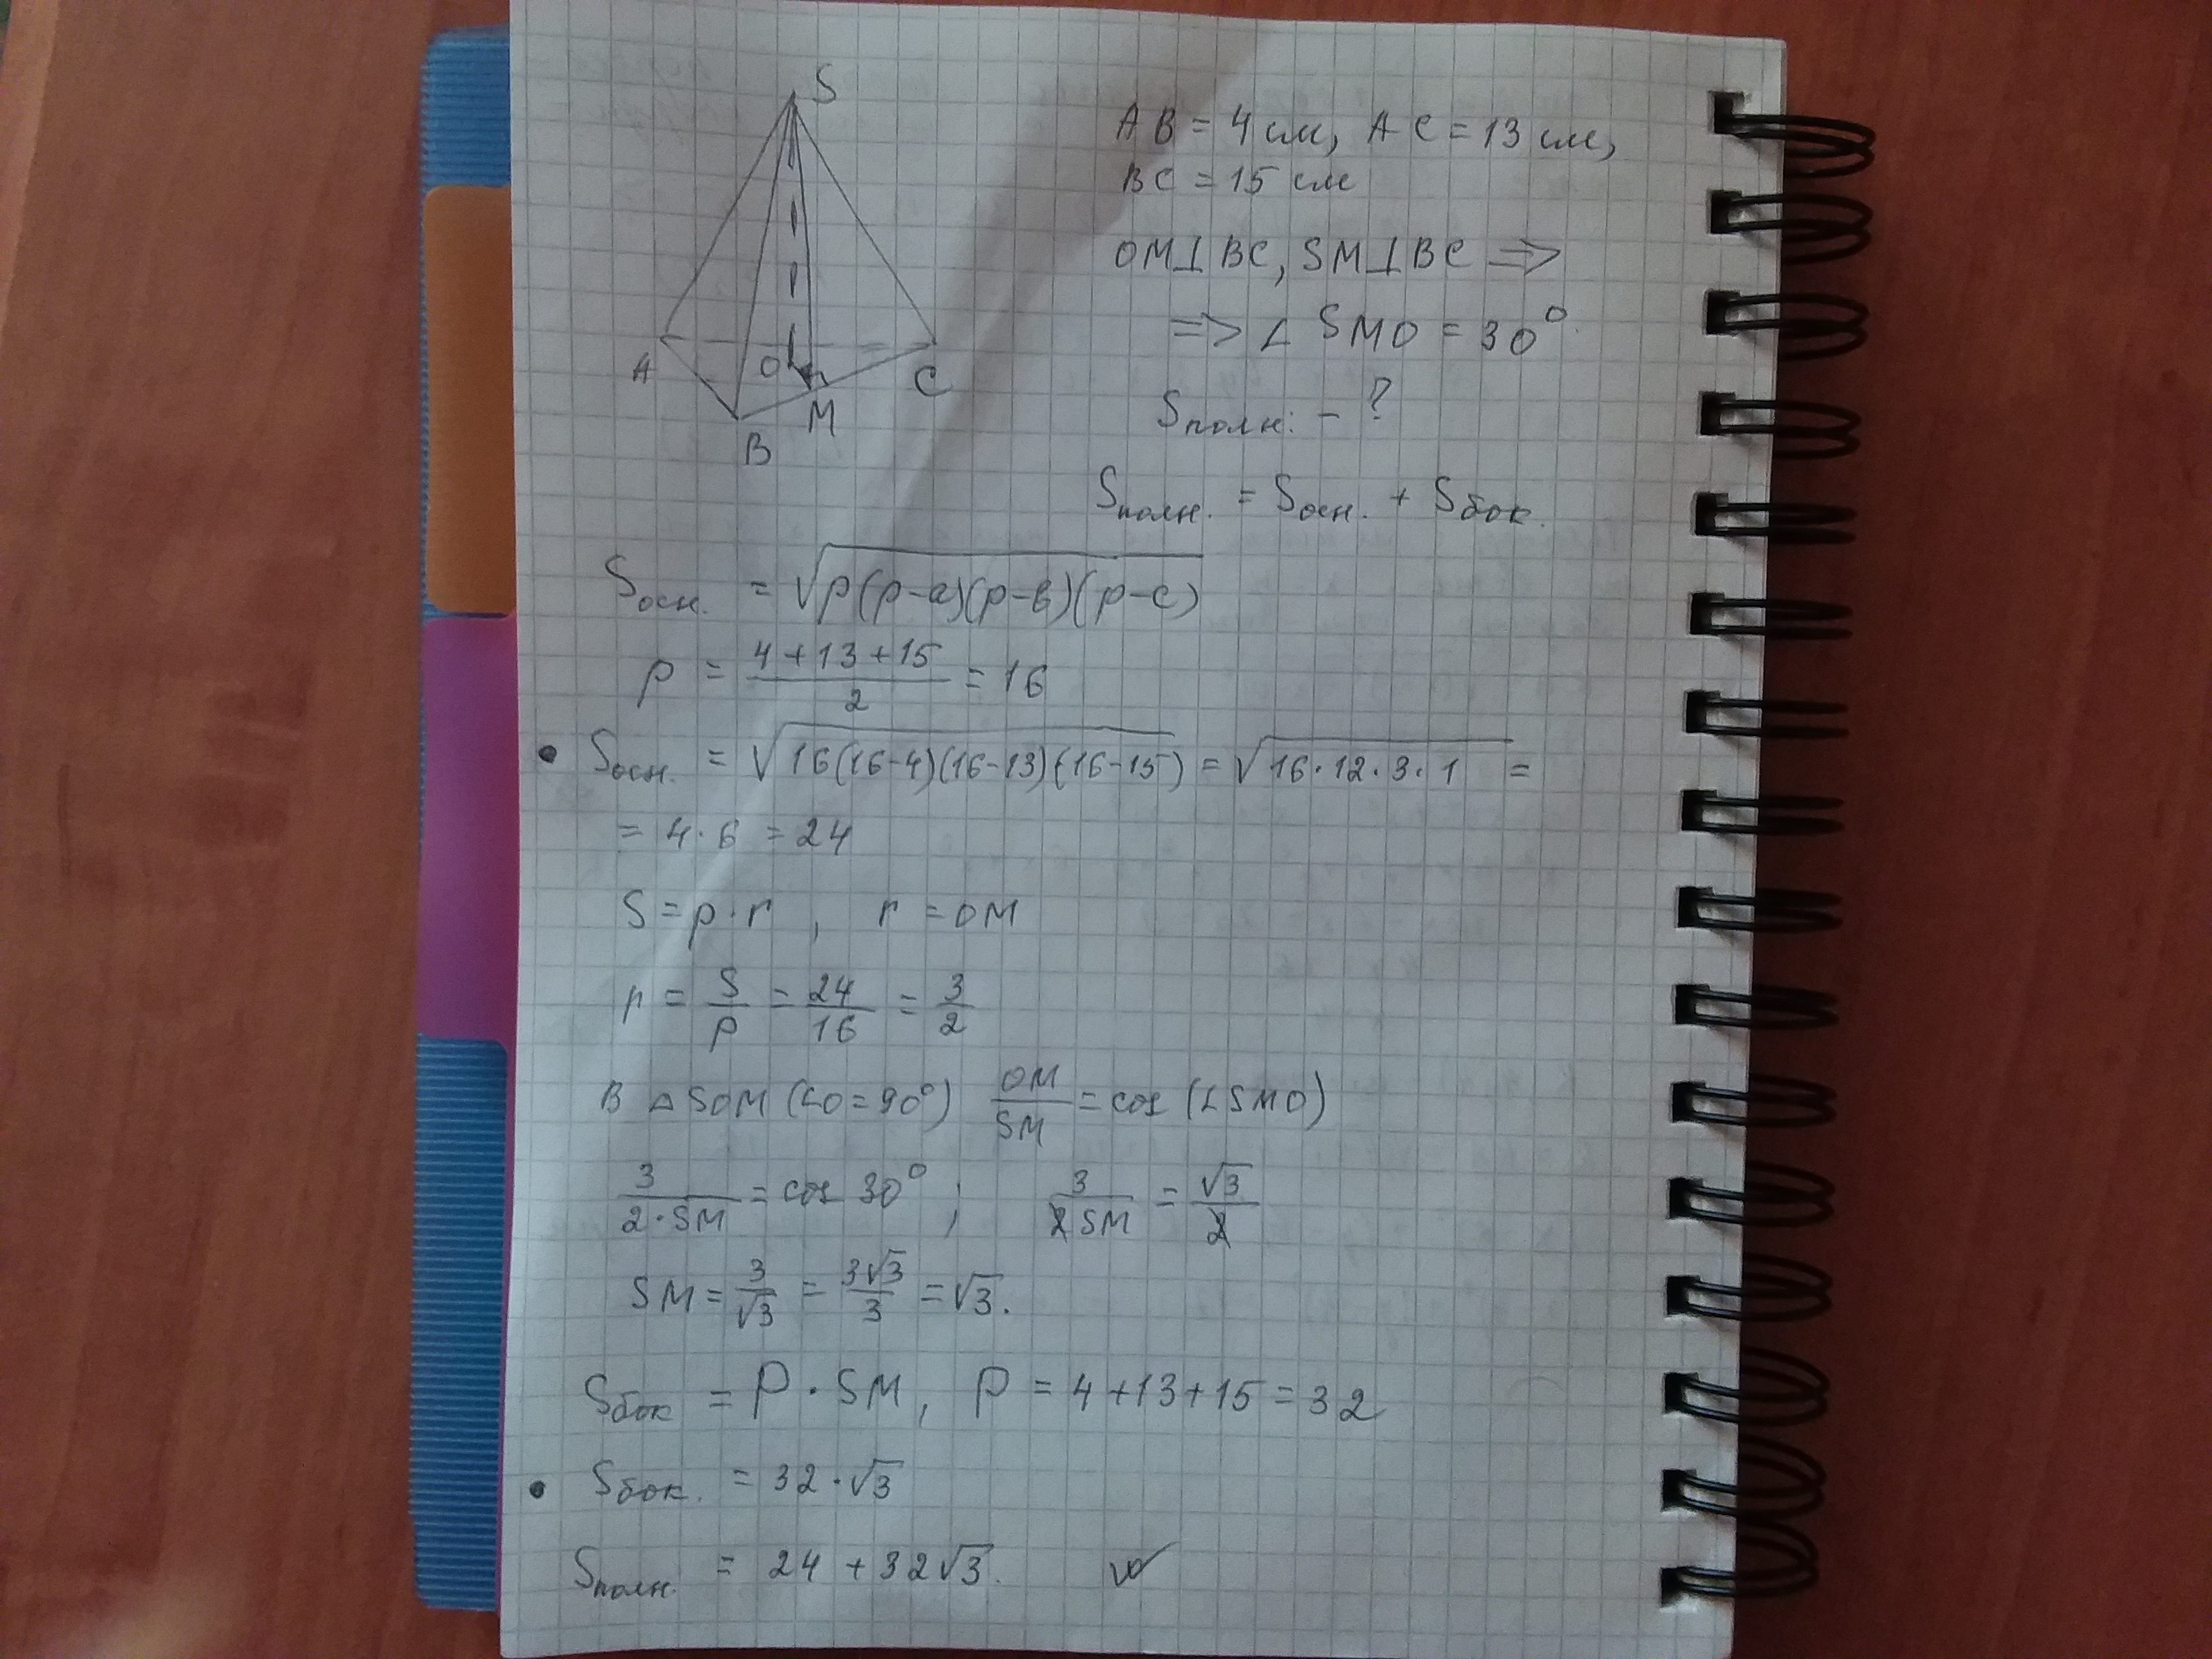 S
A
O
C
M
B
AB = 4 см, AC = 13 см,
BC = 15 см
OM⊥BC, SM⊥BC =>
=> ∠ SMO = 30°.
Sполн. - ?
Sполн. = Sосн. + Sбок.
Sосн. = √p(p-a)(p-в)(p-c)
p = (4+13+15)/2 = 16
• Sосн. = √16(16-4)(16-13)(16-15) = √16·12·3·1 =
= 4·6 = 24
S = p·r , r = OM
r = S/p = 24/16 = 3/2
В △SOM (∠O=90°) OM/SM = cos (∠SMO)
3/(2·SM) = cos 30° ; 3/(2SM) = √3/2
SM = 3/√3 = 3√3/3 = √3.
Sбок = P·SM, P = 4+13+15 = 32
• Sбок. = 32·√3
Sполн. = 24 + 32√3.